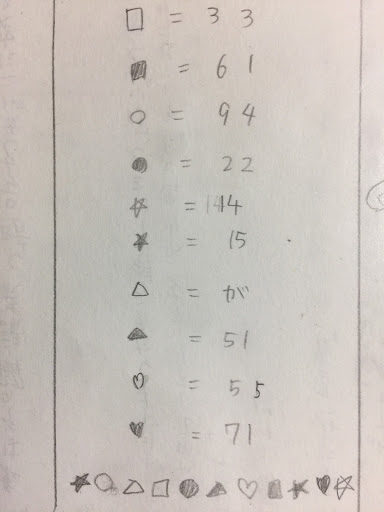 □ = 33
■ = 61
○ = 94
● = 22
☆ = 144
★ = 15
△ = が
▲ = 51
♡ = 55
♥ = 71
★○△□●▲♡■★♥☆